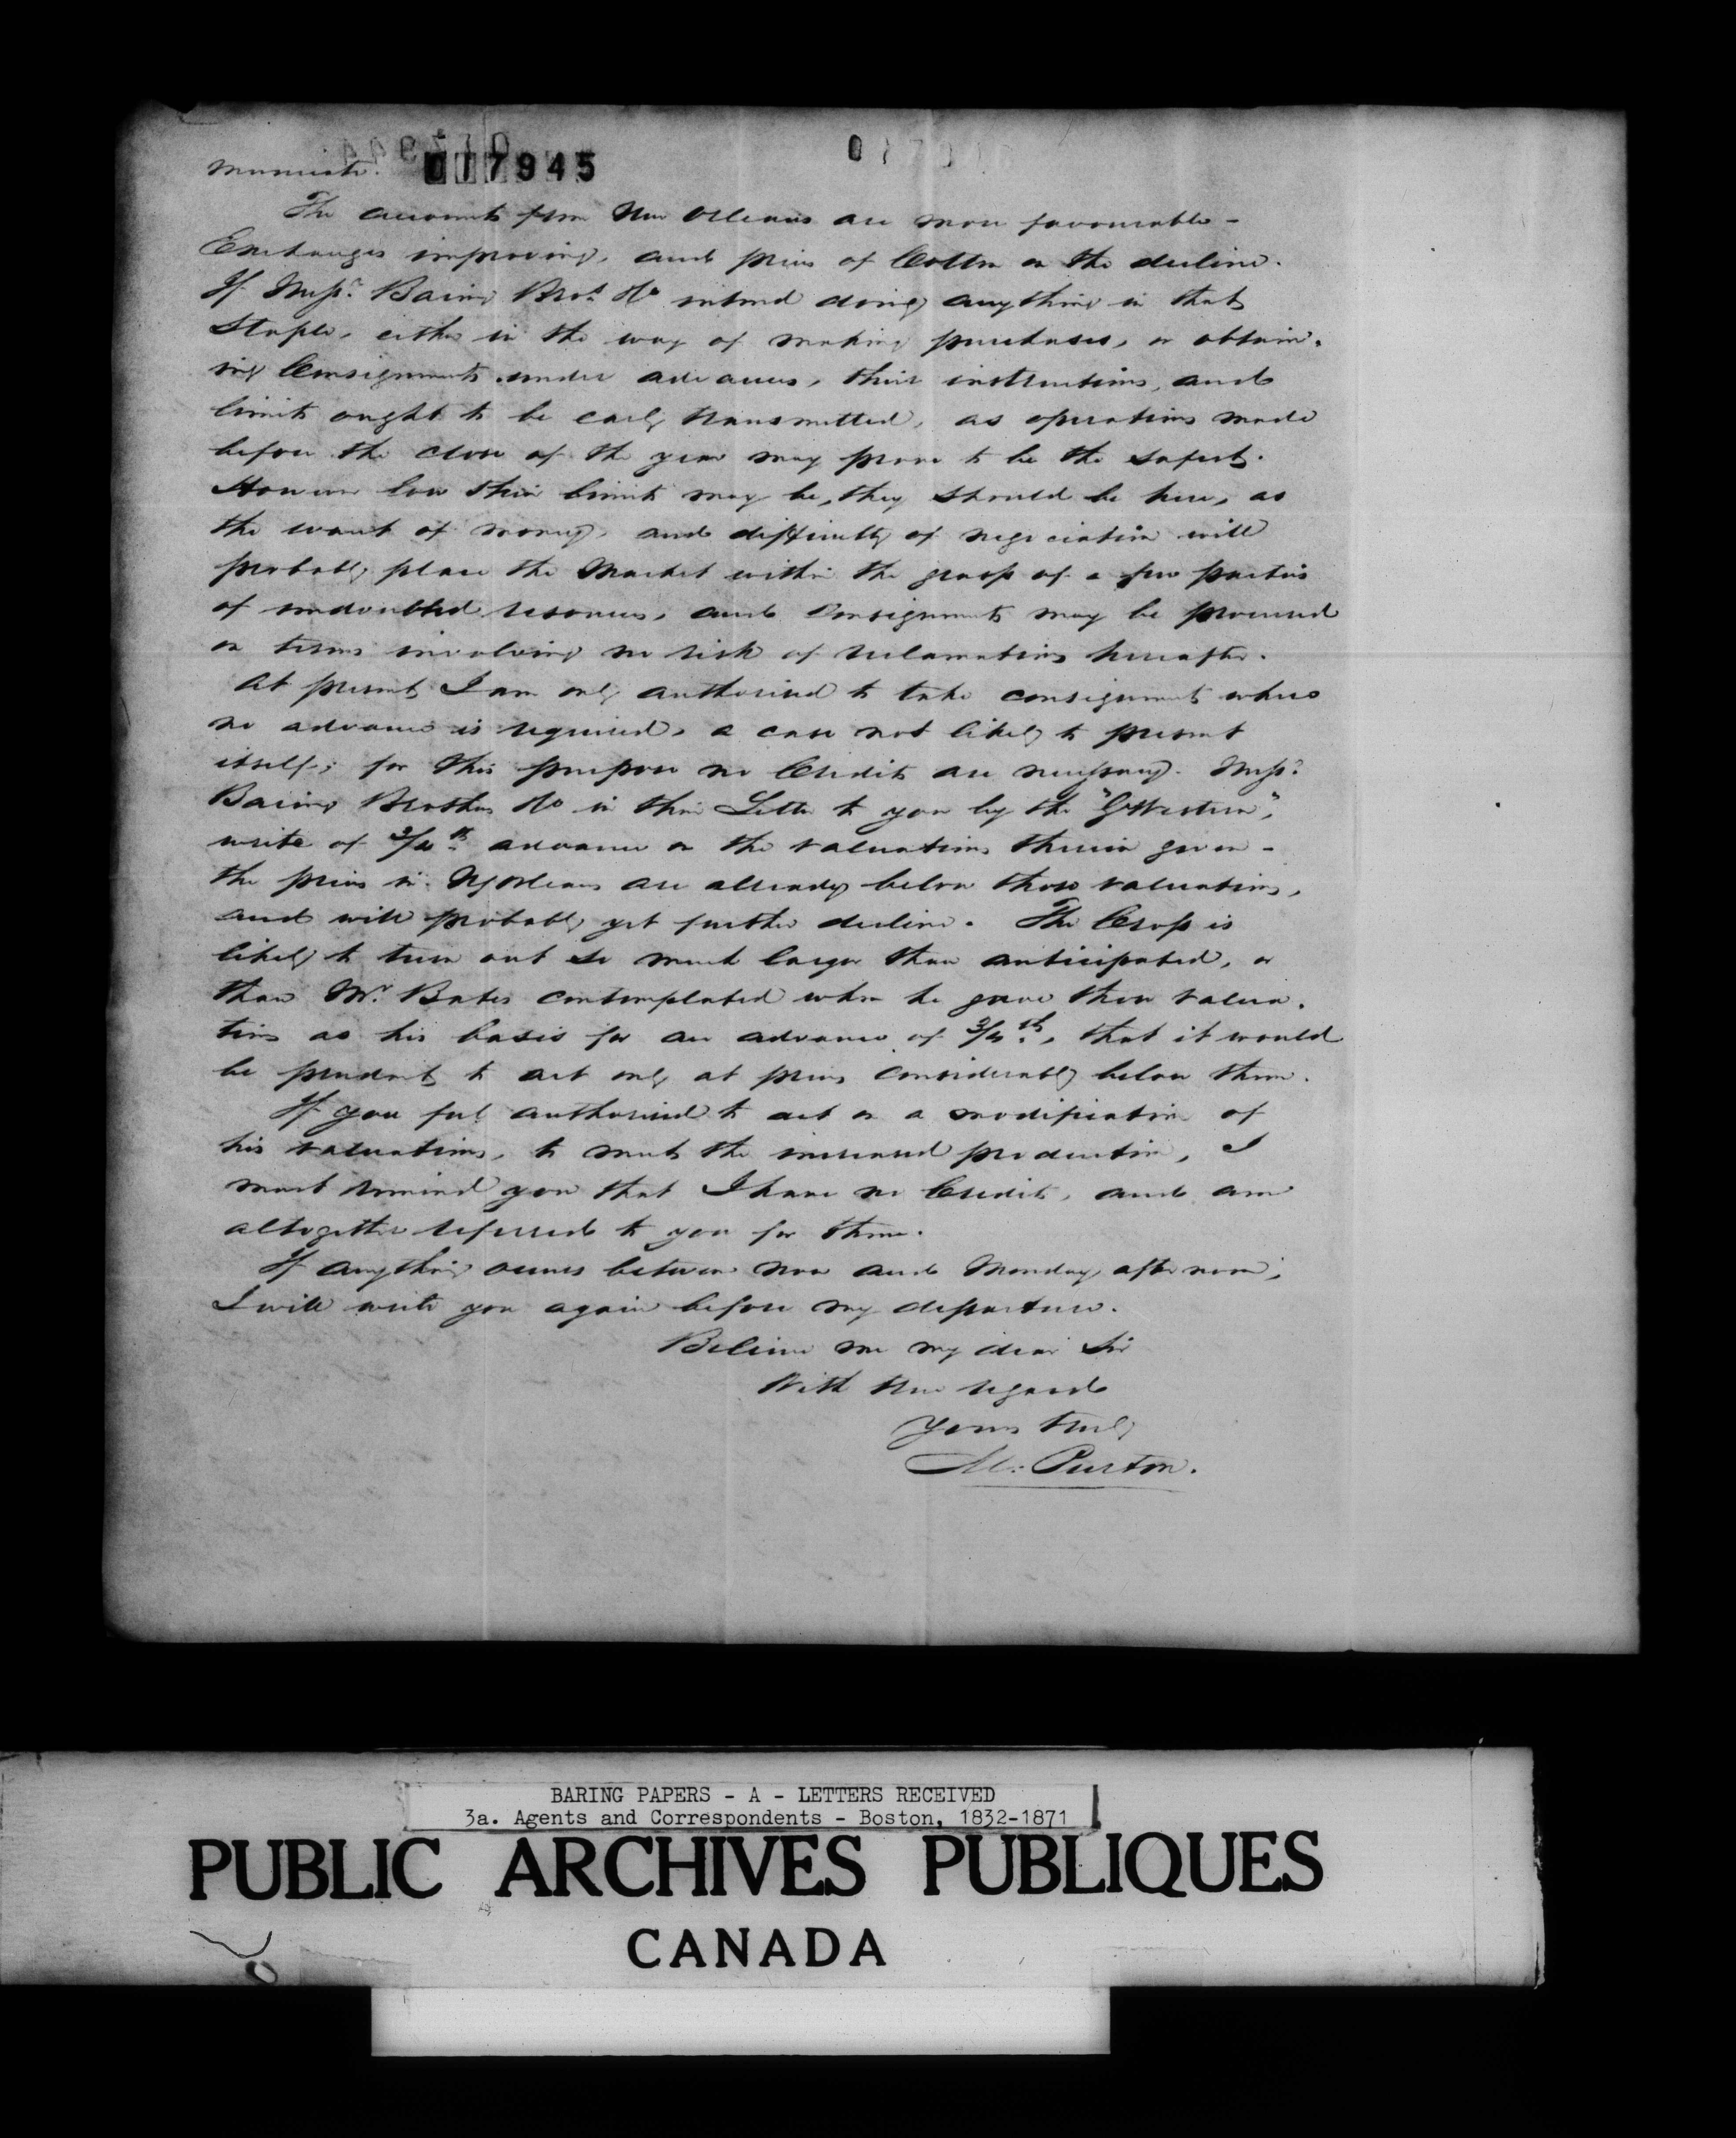 municate. 017945
The accounts from New Orleans are more favourable -
Exchanges improving, and prices of Cotton on the decline.
If Messrs. Baring Bros. & Co intend doing anything in that
Staple, either in the way of making purchases, or obtain-
ing Consignments under advances, their instructions, and
limits ought to be early transmitted, as operations made
before the close of the year may prove to be the safest.
However low their limits may be, they should be here, as
the want of money, and difficulty of negociation will
probably place the Market within the grasp of a few parties
of undoubted resources, and Consignments may be procured
on terms involving no risk of reclamations hereafter.
At present I am only authorised to take consignments where
no advance is required, a case not likely to present
itself; for this purpose no Credits are necessary. Messrs.
Baring Brothers & Co in their Letter to you by the "G Western",
write of 3/4th advance on the valuations therein given -
the prices in N Orleans are already below those valuations,
and will probably yet further decline. The Crop is
likely to turn out so much larger than anticipated, or
than Mr. Bates contemplated when he gave these valua-
tions as his basis for an advance of 3/4th, that it would
be prudent to act only at prices considerably below them.
If you feel authorised to act on a modification of
his valuations, to meet the increased production, I
must remind you that I have no Credits, and am
altogether referred to you for them.
If anything occurs between now and Monday afternoon,
I will write you again before my departure.
Believe me my dear Sir
With true regard
Yours truly
BARING PAPERS - A - LETTERS RECEIVED
3a. Agents and Correspondents - Boston, 1832-1871
PUBLIC ARCHIVES PUBLIQUES
CANADA